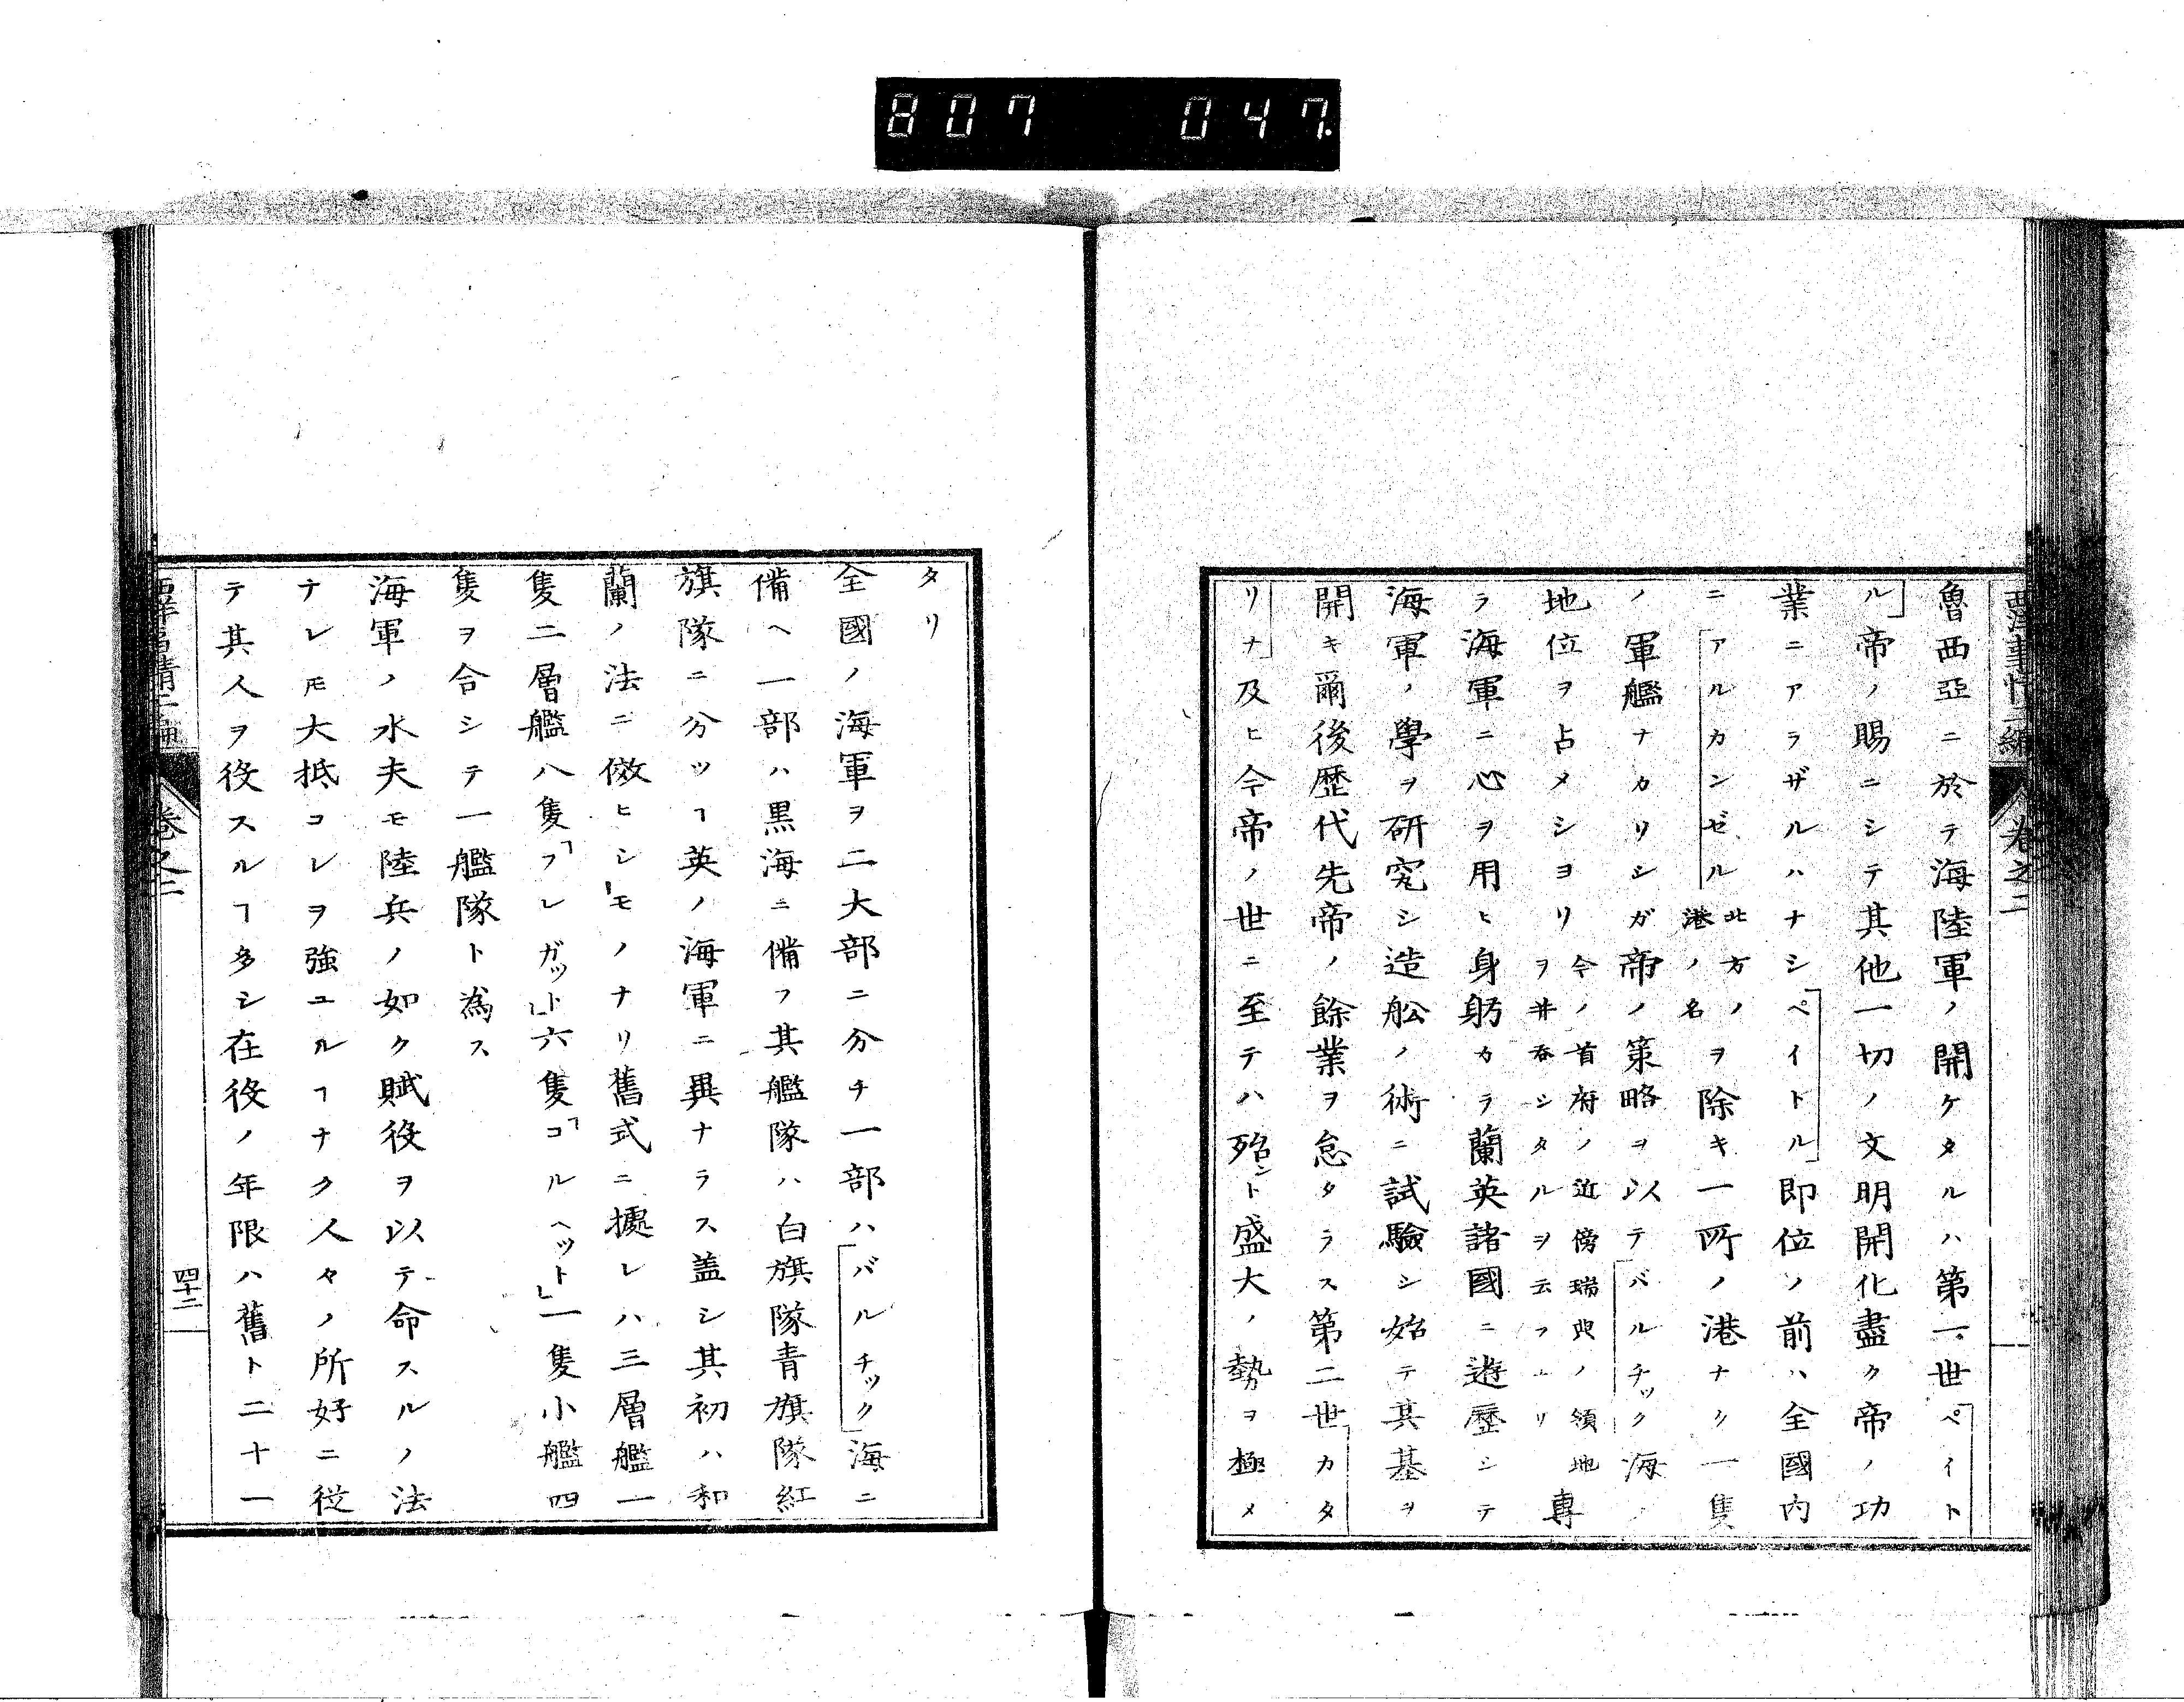 807 047.
西洋事情二編 卷之二
魯西亞ニ於テ海陸軍ノ開ケタルハ第一世「ペイト
ル」帝ノ賜ニシテ其他一切ノ文明開化盡ク帝ノ功
業ニアラザルハナシ「ペイトル」即位ノ前ハ全國内
ニ「アルカンゼル」北方ノ港ノ名ヲ除キ一所ノ港ナク一隻
ノ軍艦ナカリシガ帝ノ策略ヲ以テ「バルチック」海ノ
地位ヲ占メショリ今ノ首府ノ近傍瑞典ノ領地ヲ并呑シタルヲ云フナリ專
ラ海軍ニ心ヲ用ヒ身躬カラ蘭英諸國ニ遊歷シテ
海軍ノ學ヲ研究シ造舩ノ術ニ試驗シ始テ其基ヲ
開キ爾後歷代先帝ノ餘業ヲ怠タラス第二世「カタ
リナ」及ヒ今帝ノ世ニ至テハ殆ント盛大ノ勢ヲ極メ
タリ
全國ノ海軍ヲ二大部ニ分チ一部ハ「バルチック」海ニ
備ヘ一部ハ黒海ニ備フ其艦隊ハ白旗隊青旗隊紅
旗隊ニ分ツヿ英ノ海軍ニ異ナラス盖シ其初ハ和
蘭ノ法ニ傚ヒシモノナリ舊式ニ據レハ三層艦一
隻二層艦八隻「フレガット」六隻「コルヘット」一隻小艦四
隻ヲ合シテ一艦隊ト為ス
海軍ノ水夫モ陸兵ノ如ク賦役ヲ以テ命スルノ法
ナレ𪜈大抵コレヲ強ユルヿナク人々ノ所好ニ從
テ其人ヲ役スルヿ多シ在役ノ年限ハ舊ト二十一
西洋事情二編 卷之二
四十三